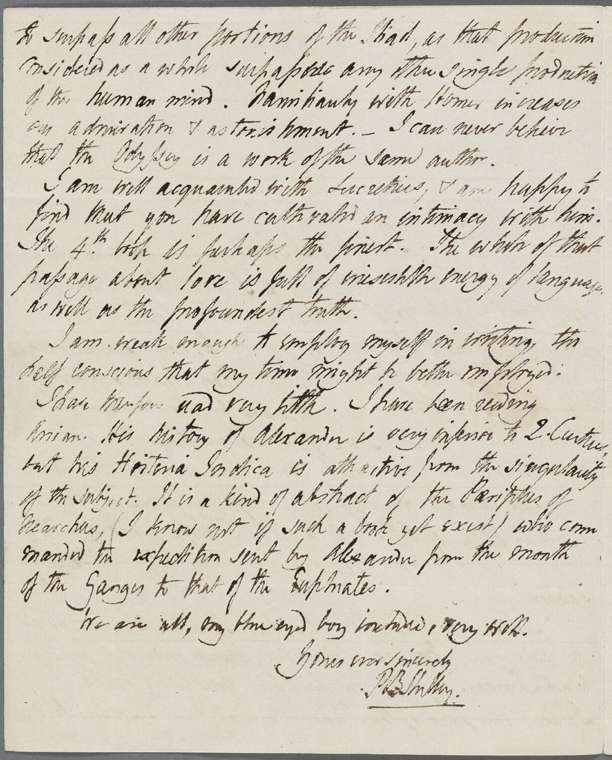 to surpass all other portions of the Iliad, as that production
considered as a whole surpasses any other single production
of the human mind. Familiarity with Homer increases
our admiration & astonishment. – I can never believe
that the Odyssey is a work of the same author.
I am well acquainted with Lucretius, & am happy to
find that you have cultivated an intimacy with him.
The 4.th book is perhaps the finest. The whole of that
passage about love is full of irresistible energy of language
as well as the profoundest truth.
I am weak enough to employ myself in writing, tho
half conscious that my time might be better employed:
I have therefore read very little. I have been reading
Arrian. His history of Alexander is very inferior to 2. Curtius,
but his Historia Indica is attractive from the singularity
of the subject. It is a kind of abstract of the Periplus of
Nearchus, (I know not if such a book yet exist) who com
manded the expedition sent by Alexander from the mouth
of the Ganges to that of the Euphrates.
We are all, my blue eyed boy included, very well.
Yours ever sincerely
PBShelley.